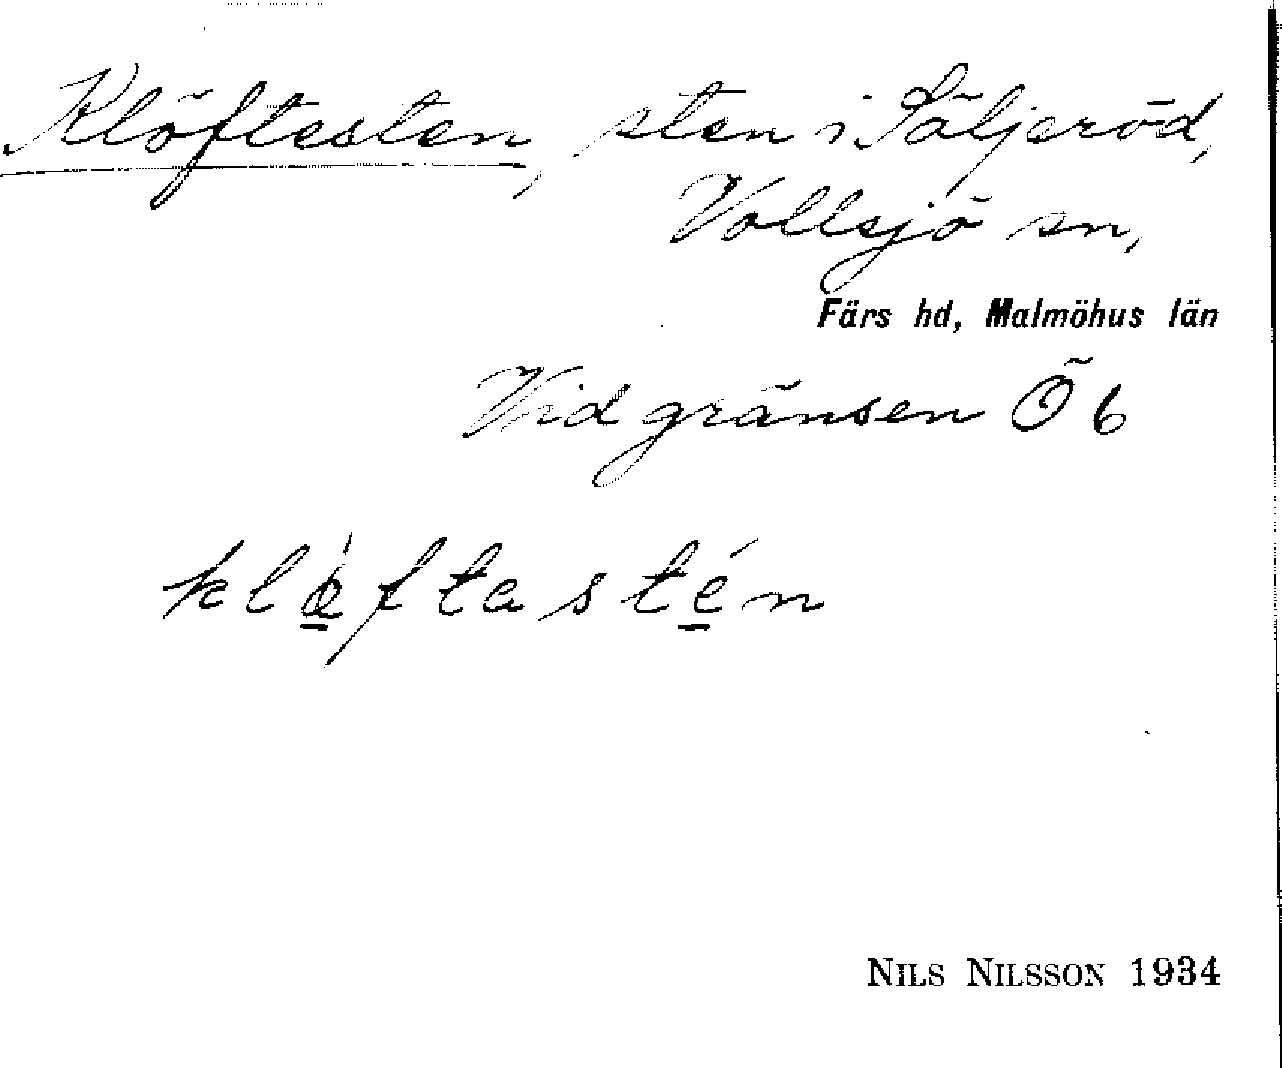 Klöftesten, sten i Säljeröd,
Vollsjö sn,
Färs hd, Malmöhus län
Vid gränsen Ö 6
NILS NILSSON 1934